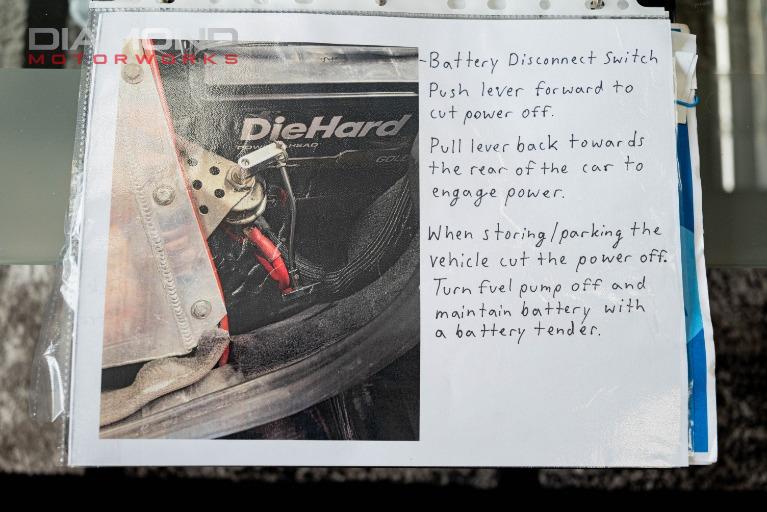 DIAMOND
MOTORWORKS
DieHard
GOLD
~Battery Disconnect Switch
Push lever forward to
cut power off.
Pull lever back towards
the rear of the car to
engage power.
When storing/parking the
vehicle cut the power off.
Turn fuel pump off and
maintain battery with
a battery tender.